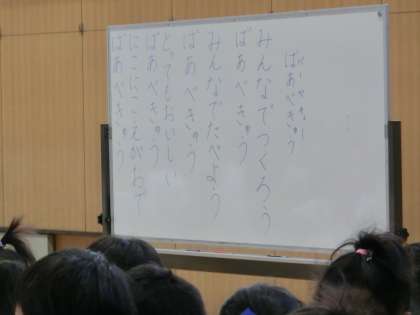 バーベキュー
ばあべきゅう
みんなでつくろう
ばあべきゅう
みんなでたべよう
ばあべきゅう
とってもおいしい
ばあべきゅう
にこにこえがおで
ばあべきゅう